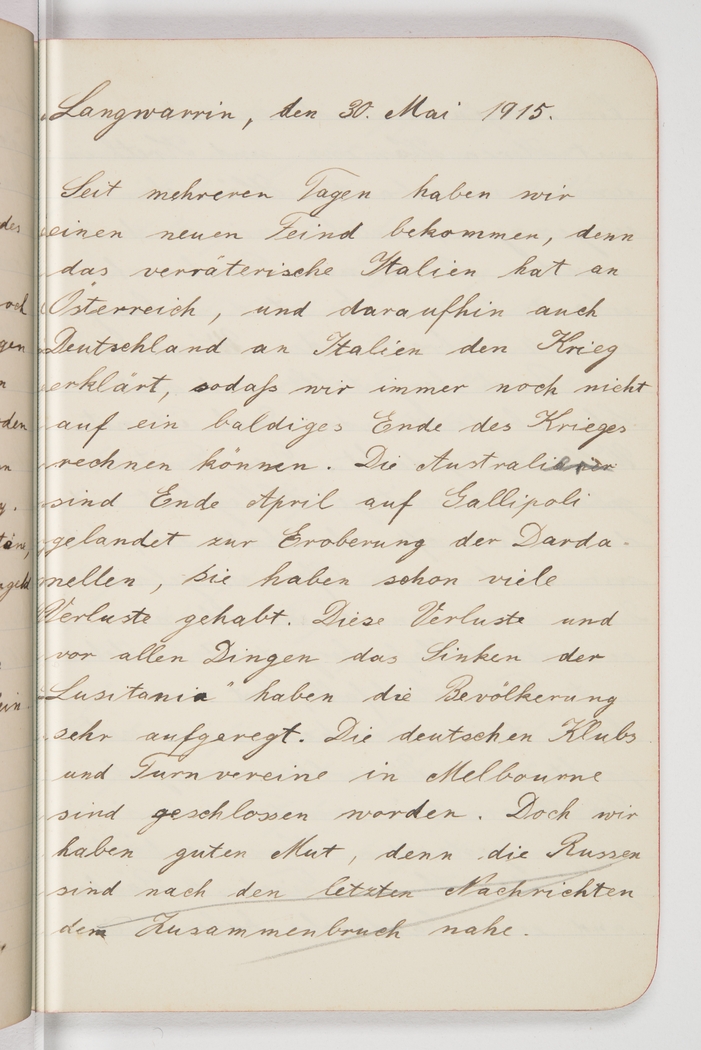 Langwarrin, den 30. Mai 1915.
Seit mehreren Tagen haben wir
einen neuen Feind bekommen, denn
das verräterische Italien hat an
Österreich, und daraufhin auch
Deutschland an Italien den Krieg
erklärt, sodaß wir immer noch nicht
auf ein baldiges Ende des Krieges
rechnen können. Die Australier
sind Ende April auf Gallipoli
gelandet zur Eroberung der Darda-
nellen, sie haben schon viele
Verluste gehabt. Diese Verluste und
vor allen Dingen das Sinken der
Lusitania" haben die Bevölkerung
sehr aufgeregt. Die deutschen Klubs
und Turnvereine in Melbourne
sind geschlossen worden. Doch wir
haben guten Mut, denn die Russen
sind nach den letzten Nachrichten
dem Zusammenbruch nahe.